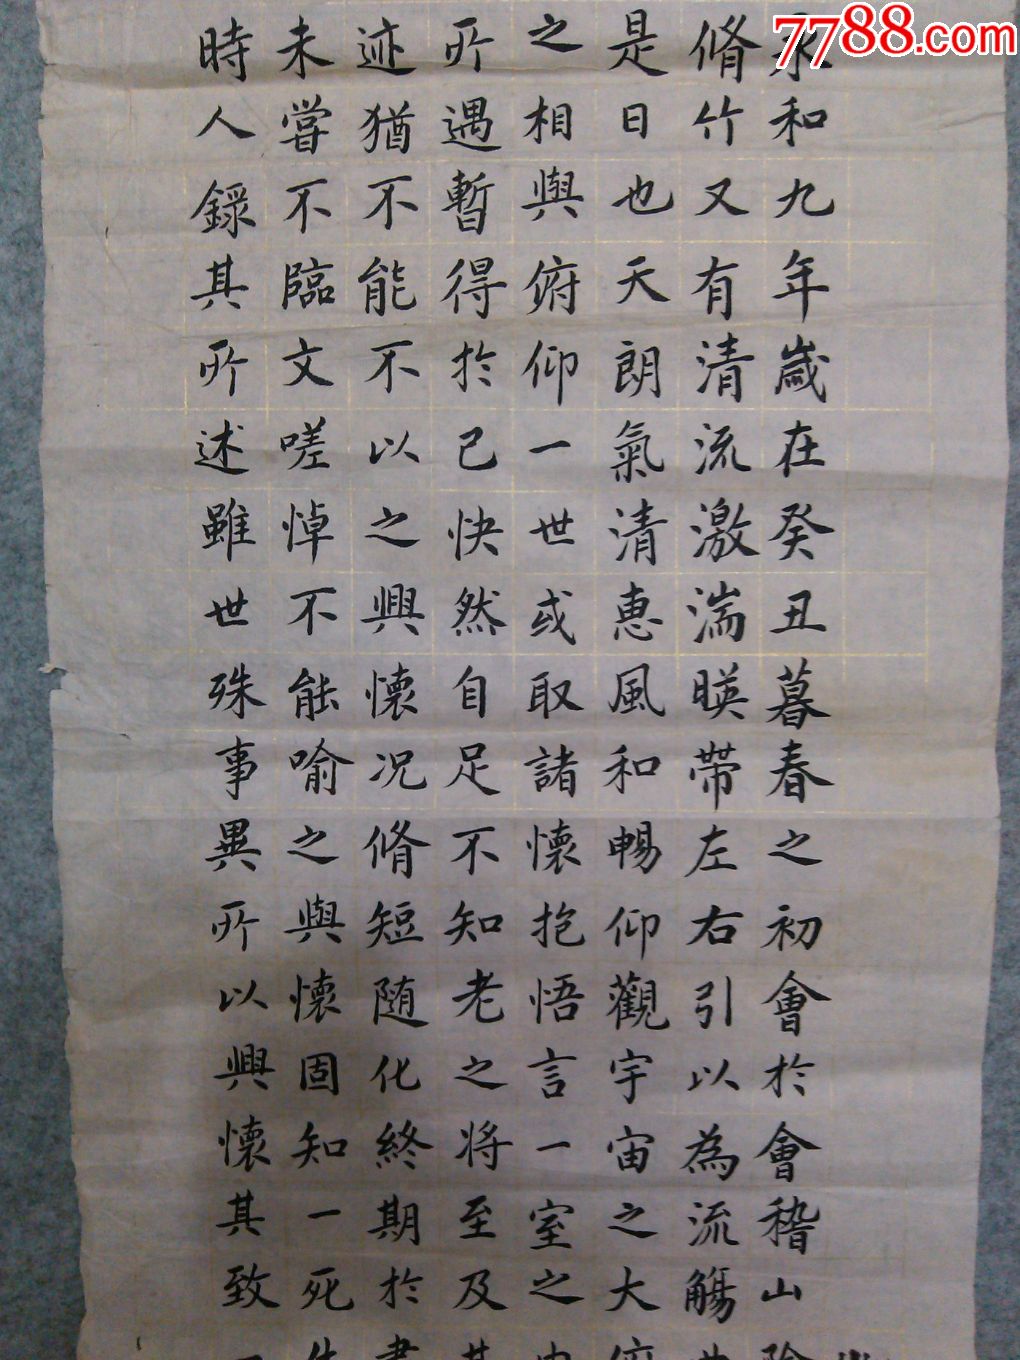 7788.com
永和九年歲在癸丑暮春之初會於會稽山
脩竹又有清流激湍暎帶左右引以為流觴
是日也天朗氣清惠風和暢仰觀宇宙之大
之相與俯仰一世或取諸懷抱悟言一室之
所遇暫得於己快然自足不知老之将至及
迹猶不能不以之興懷况脩短随化終期於
未嘗不臨文嗟悼不能喻之與懷固知一死
時人錄其所述雖世殊事異所以興懷其致